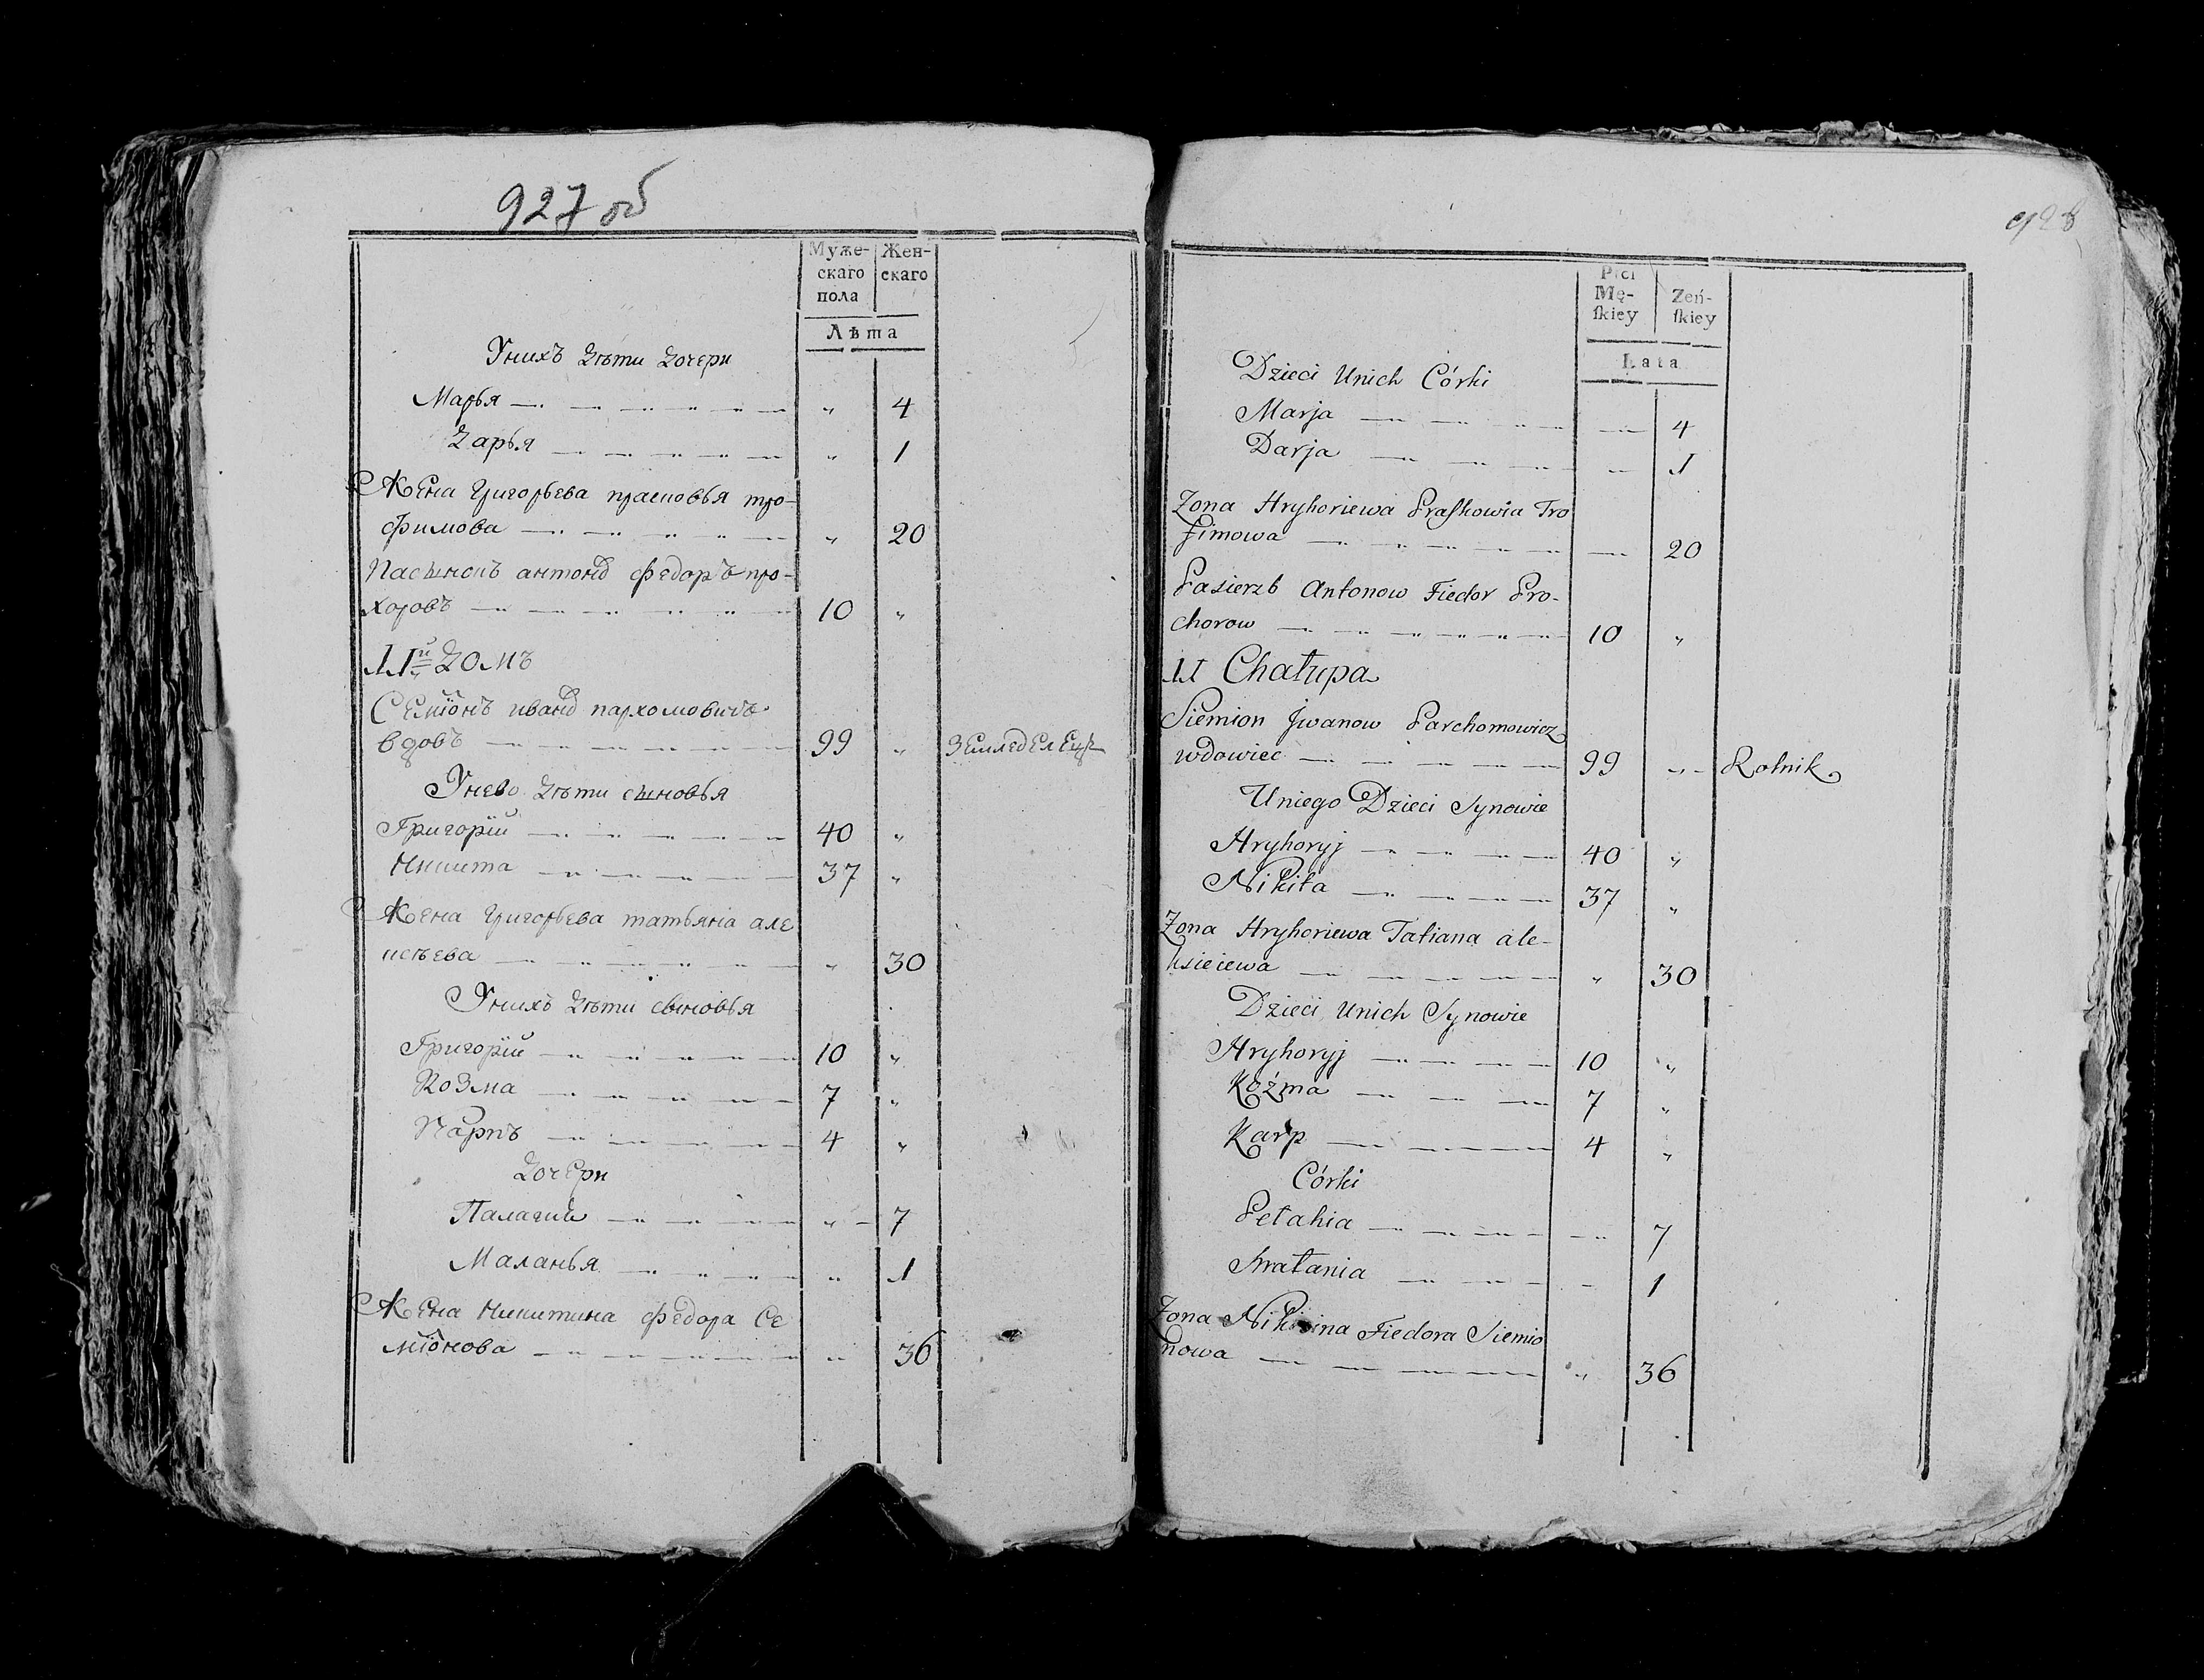 927 об
Муже-
скаго
пола
Жен-
скаго
Лѣта
Унихъ дѣти дочери
Марья 4
Дарья 1
Жена Григорьева прасковья тро-
фимова 20
Пасынокъ антонд федоръ про-
хоровъ 10
11й домъ
Семіонъ иванд пархомовичъ
вдовъ 99 землед елецъ
Унево дѣти сыновья
Григорій 40
Никита 37
Жена Григорьева татьяніа але
исѣева 30
Унихъ дѣти сыновья
Григорій 10
Козма 7
Карпъ 4
дочери
Палагии 7
Маланья 1
Жена Никитина федора Се
міонова 36
928
Płci
Mę-
ſkiey
Zeń-
ſkiey
Lata
Dzieci Unich Córki
Marja 4
Darja 1
Zona Hryhoriewa Praſkowia Tro
fimowa 20
Pasierzb Antonow Fiedor Pro-
chorow 10
11 Chałupa
Siemion Jwanow Parchomowicz
wdowiec 99 Rolnik
Uniego Dzieci Synowie
Hryhoryj 40
Nikita 37
Zona Hryhoriewa Tatiana ale-
ksieiewa 30
Dzieci Unich Synowie
Hryhoryj 10
Koźma 7
Karp 4
Córki
Pełahia 7
Małania 1
Zona Fiedora Siemio
nowa 36